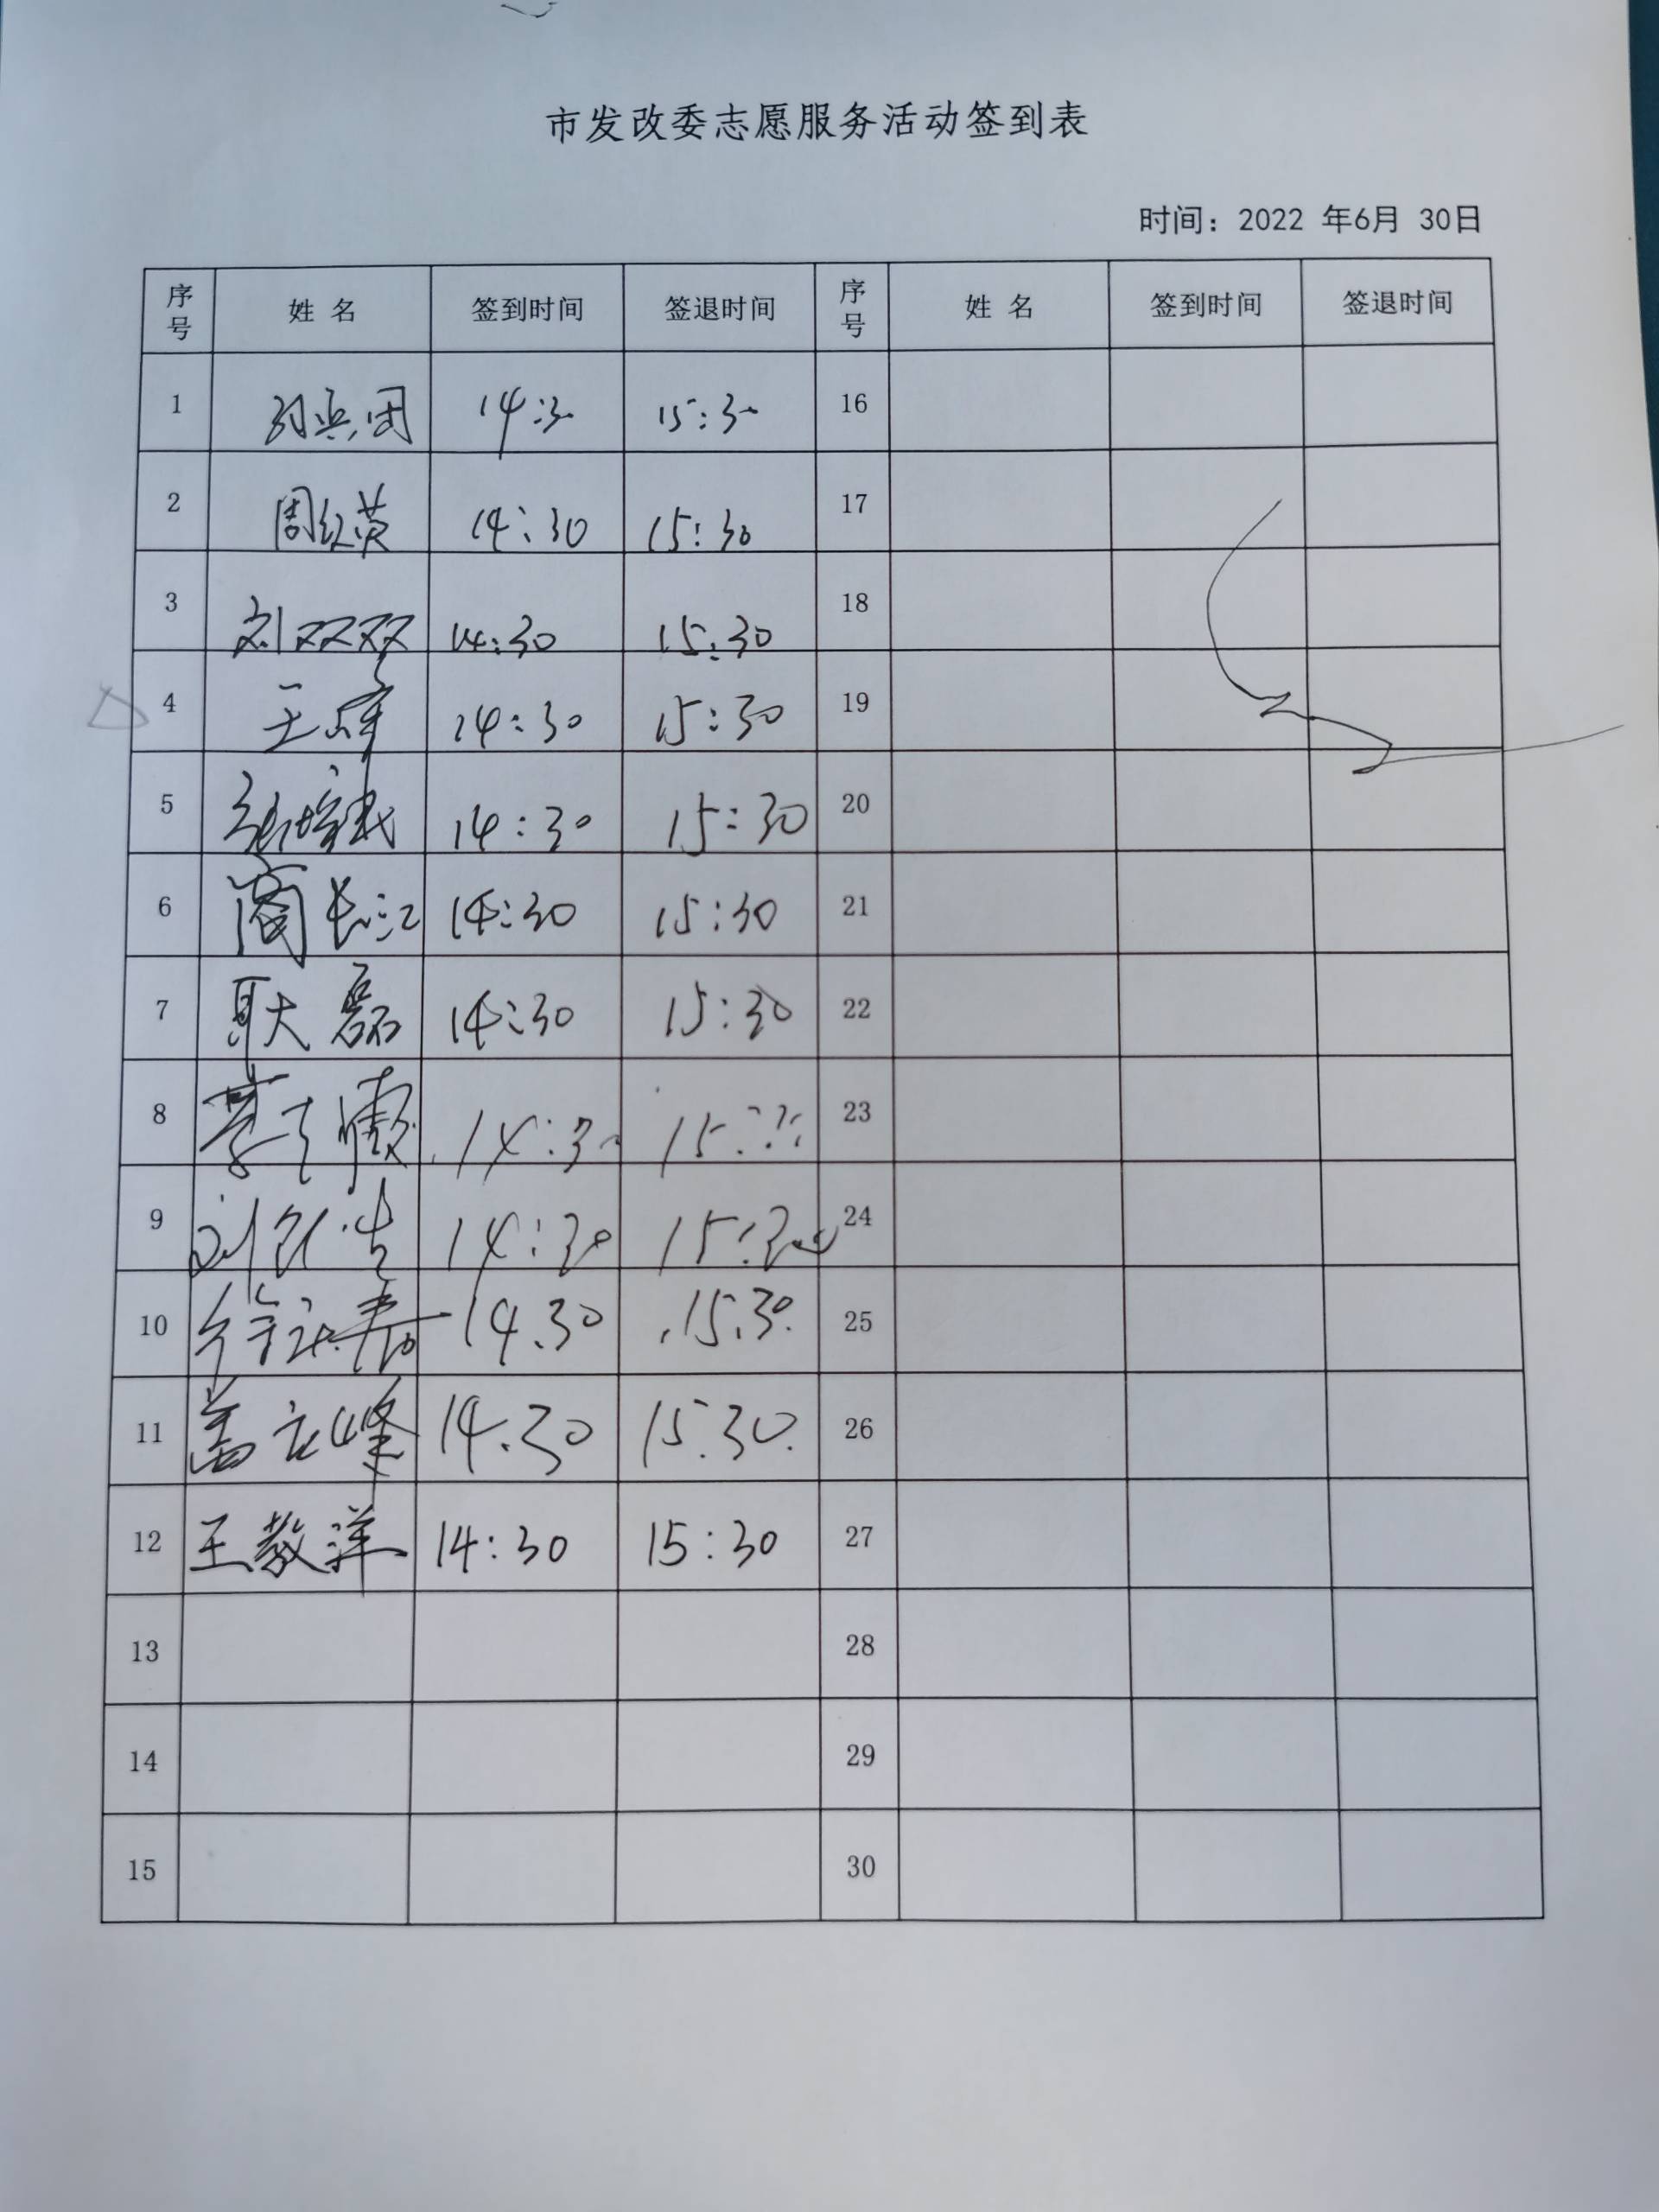 市发改委志愿服务活动签到表
时间：2022 年6月 30日
序号 姓 名 签到时间 签退时间 序号 姓 名 签到时间 签退时间
1 14:30 15:30 16
2 周红英 14:30 15:30 17
3 刘双双 14:30 15:30 18
4 王 14:30 15:30 19
5 14:30 15:30 20
6 商长江 14:30 15:30 21
7 耿大磊 14:30 15:30 22
8 14:30 15: 23
9 刘 14:30 15:30 24
10 徐 14.30 15.30. 25
11 盖立峰 14.30 15.30. 26
12 王教洋 14:30 15:30 27
13 28
14 29
15 30